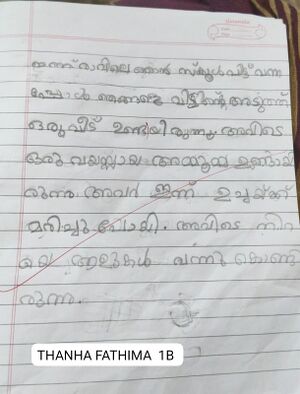 ഇന്ന് രാവിലെ ഞാൻ സ്കൂൾ വിട്ട് വന്ന
പ്പോൾ ഞങ്ങളുടെ വീട്ടിന്റെ അടുത്ത്
ഒരു വീട് ഉണ്ടായിരുന്നു അവിടെ
ഒരു വയസ്സായ അമ്മൂമ്മ ഉണ്ടായി
രുന്നു അവർ ഇന്ന് ഉച്ചയ്ക്ക്
മരിച്ചു പോയി. അവിടെ നിറ
യെ ആളുകൾ വന്നു കൊണ്ടി
രുന്നു.
THANHA FATHIMA 1B